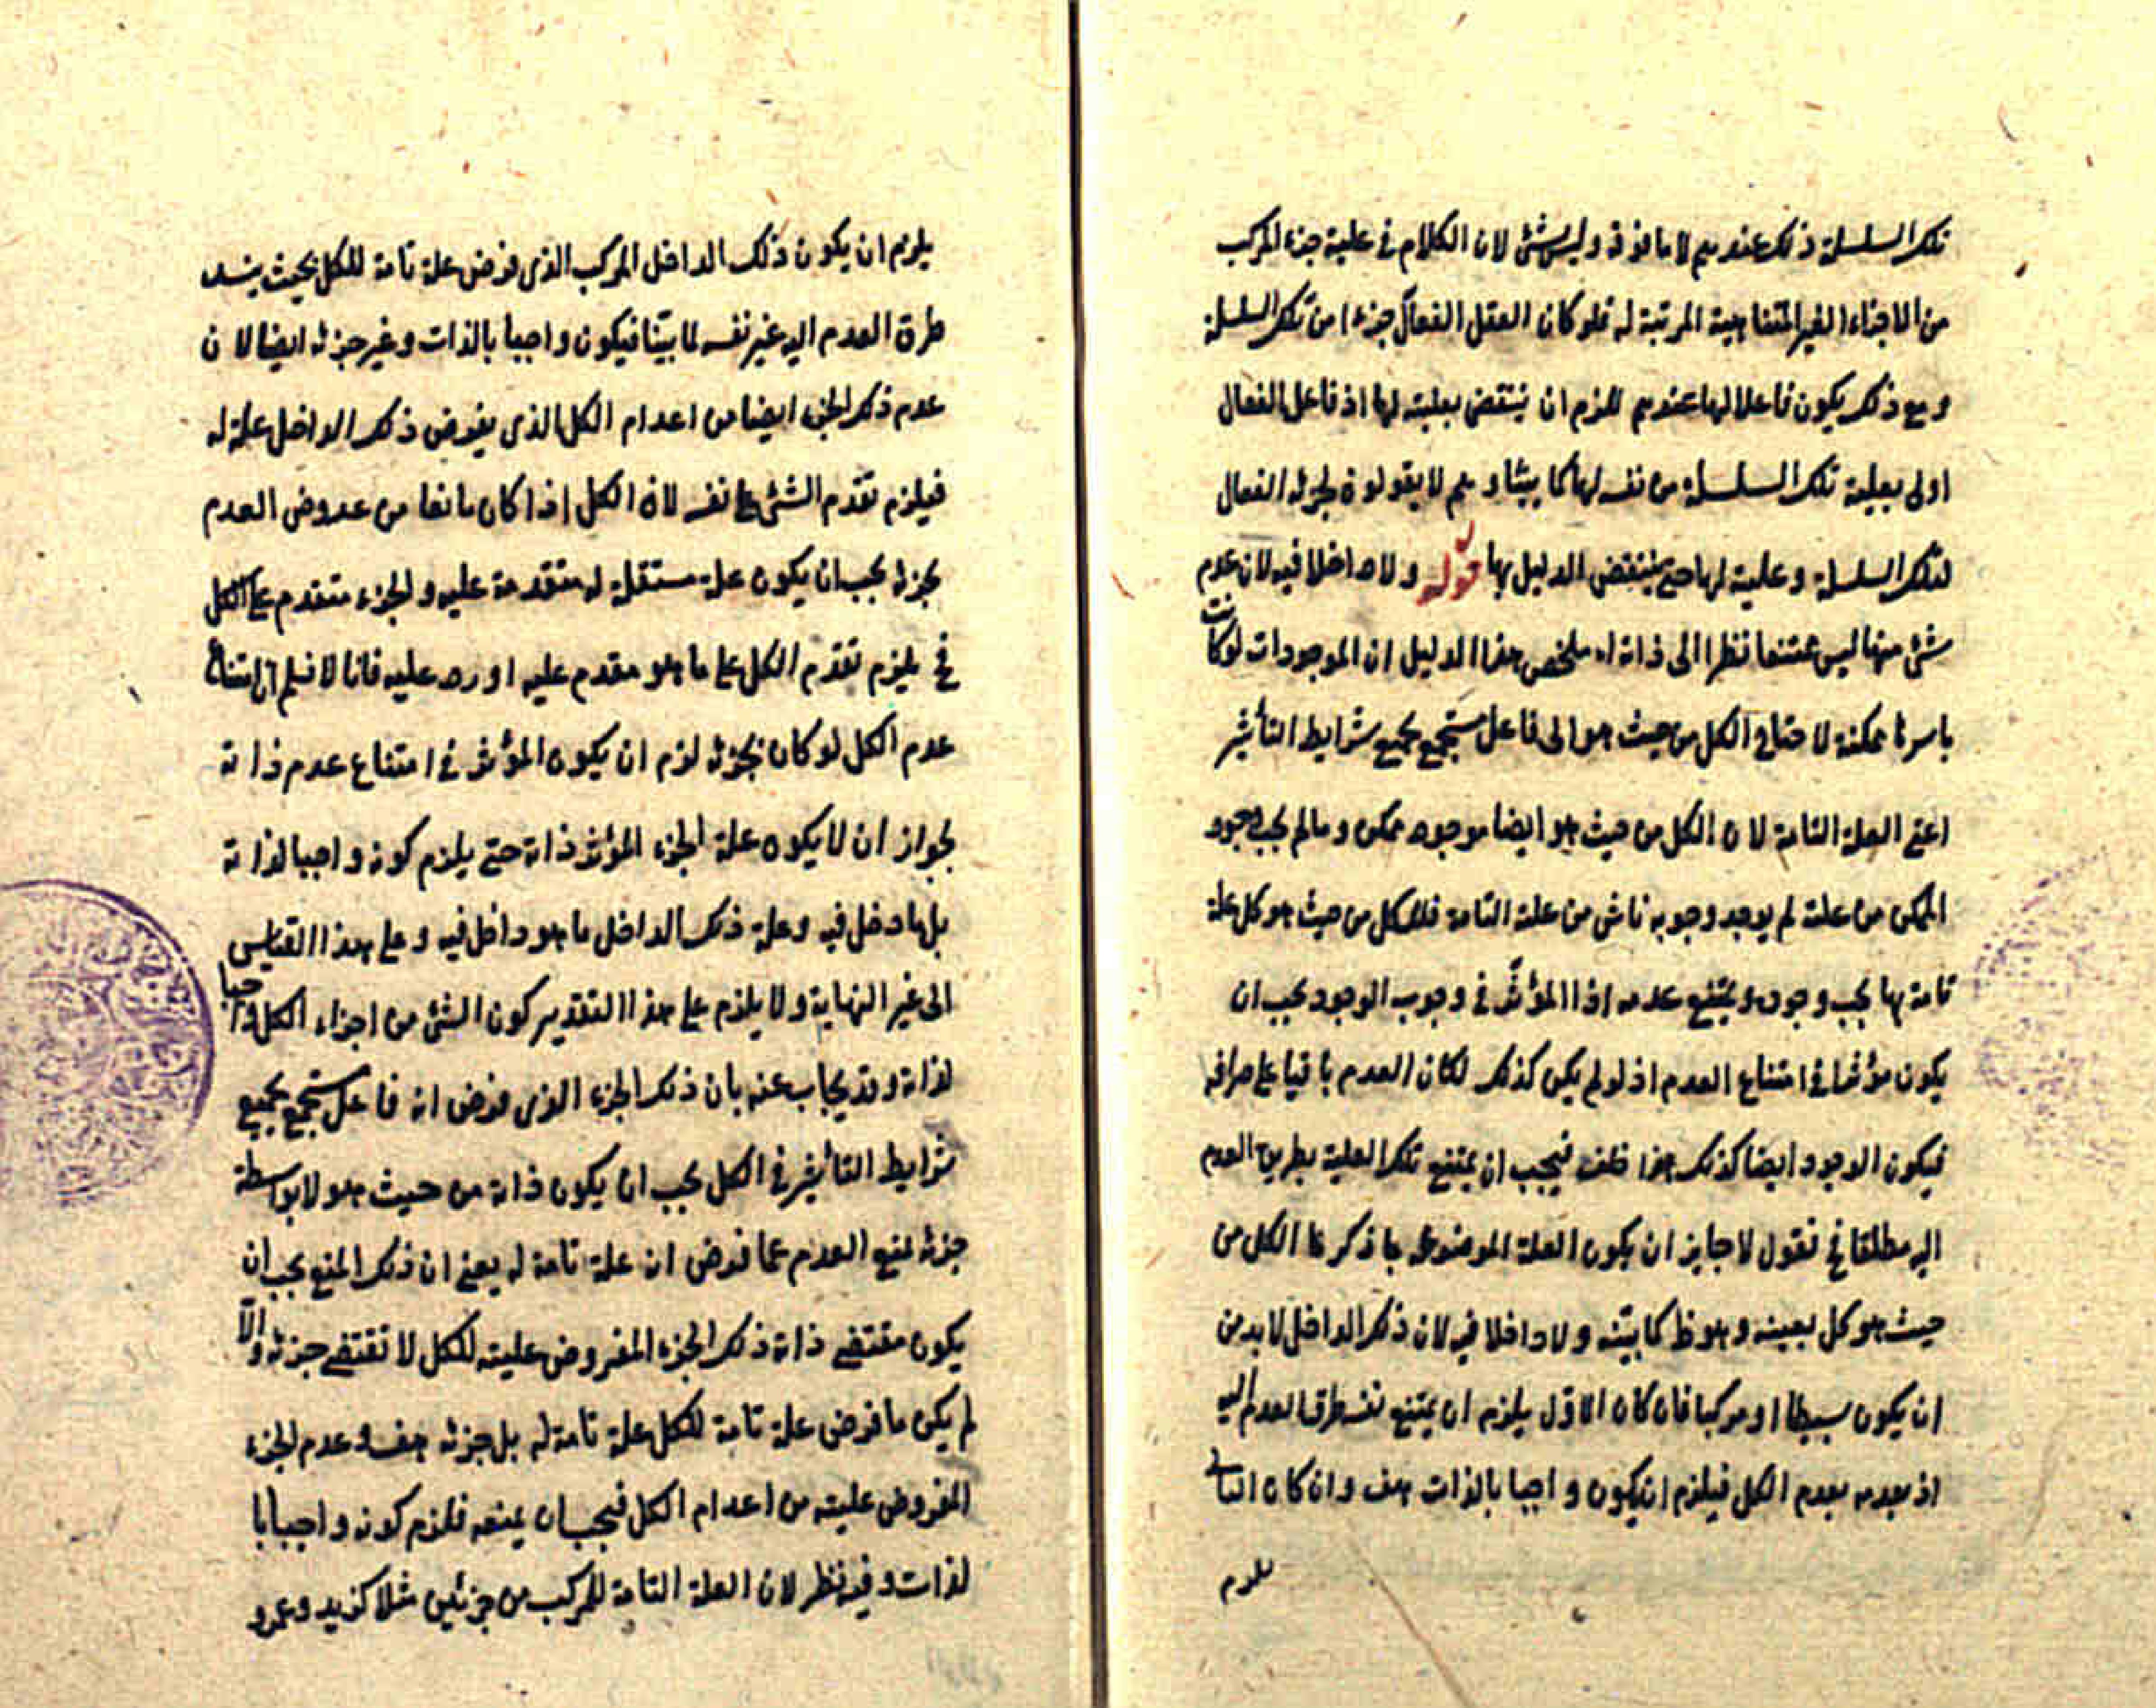 تلك السلسلة ذلك عندهم لا ما فوقه وليس بشئ لان الكلام فى علية جزء المركب
من الاجزاء الغير المتناهية المرتبة له فلو كان العقل الفعال جزءا من تلك السلسلة
ومع ذلك يكون فاعلا لها عندهم للزم ان ينتقض بعليته لها اذ فاعل الفعال
اولى بعلية تلك السلسلة من نفسه لها كما بينا وهم لا يقولون لجزئه الفعال
لتلك السلسلة وعلية لها حتى ينتقض الدليل بها قوله ولا داخلا فيه لان عدم
شئ منها ليس ممتنعا نظرا الى ذاته اه ملخص هذا الدليل ان الموجودات لو كانت
باسرها ممكنة لاحتاج الكل من حيث هو الى فاعل مستجمع بجميع شرايط التأثير
اعنى العلة التامة لان الكل من حيث هو ايضا موجود ممكن وما لم يجب وجود
الممكن من علته لم يوجد وجوبه ناش من علته التامة فللكل من حيث هو كل علة
تامة بها يجب وجوده ويمتنع عدمه اذا المؤثر فى وجوب الوجود يجب ان
يكون مؤثرا فى امتناع العدم اذ لو لم يكن كذلك لكان العدم باقيا على صرافته
فيكون الوجود ايضا كذلك هذا خلف فيجب ان يمتنع تلك العلية بطريق العدم
اليه مطلقا فح نقول لا جايز ان يكون العلة الموصوفة بما ذكرنا الكل من
حيث هو كل بعينه وهو ظ كما بينته ولا داخلا فيه لان ذلك الداخل لا بد من
ان يكون بسيطا او مركبا فان كان الاول يلزم ان يمتنع نفسه طرق العدم اليه
اذ بعدمه يعدم الكل فيلزم ان يكون واجبا بالذات هف وان كان الثانى
يلزم
يلزم ان يكون ذلك الداخل المركب الذى فرض علة تامة للكل بحيث ينسد
طرق العدم اليه غير نفسه لما بينا فيكون واجبا بالذات وغير جزئه ايضا لان
عدم ذلك الجزء ايضا من اعدام الكل الذى يفرض ذلك الداخل علة له
فيلزم تقدم الشئ على نفسه لان الكل اذا كان مانعا من عروض العدم
بجزئه يجب ان يكون علة مستقلة له متقدمة عليه والجزء متقدم على الكل
فح يلزم تقدم الكل على ما هو مقدم عليه اورد عليه فانا لا نسلم ان امتناع
عدم الكل لو كان بجزئه لزم ان يكون المؤثر فى امتناع عدم ذاته
لجواز ان لا يكون علة الجزء المؤثر ذاته حتى يلزم كونه واجبا لذاته
بل ما دخل فيه وعلة ذلك الداخل ما هو داخل فيه وعلى هذا القياس
الى غير النهاية ولا يلزم على هذا التقدير كون الشئ من اجزاء الكل واجبا
لذاته وقد يجاب عنه بان ذلك الجزء الذى فرض انه فاعل مستجمع بجميع
شرايط التأثير فى الكل يجب ان يكون ذاته من حيث هو لا بواسطة
جزئه لمنع العدم عما فرض ان علة تامة له يعنى ان ذلك المنع يجب ان
يكون مقتضى ذاته ذلك الجزء المفروض عليته للكل لا تقتضى جزئه والا
لم يكن ما فرض علة تامة للكل علة تامة له بل جزئه هف وعدم الجزء
المفروض عليته من اعدام الكل فيجب ان يمنعه فلزم كونه واجبا با
لذات وفيه نظر لان العلة التامة للمركب من جزئين مثلا كزيد وعمرو